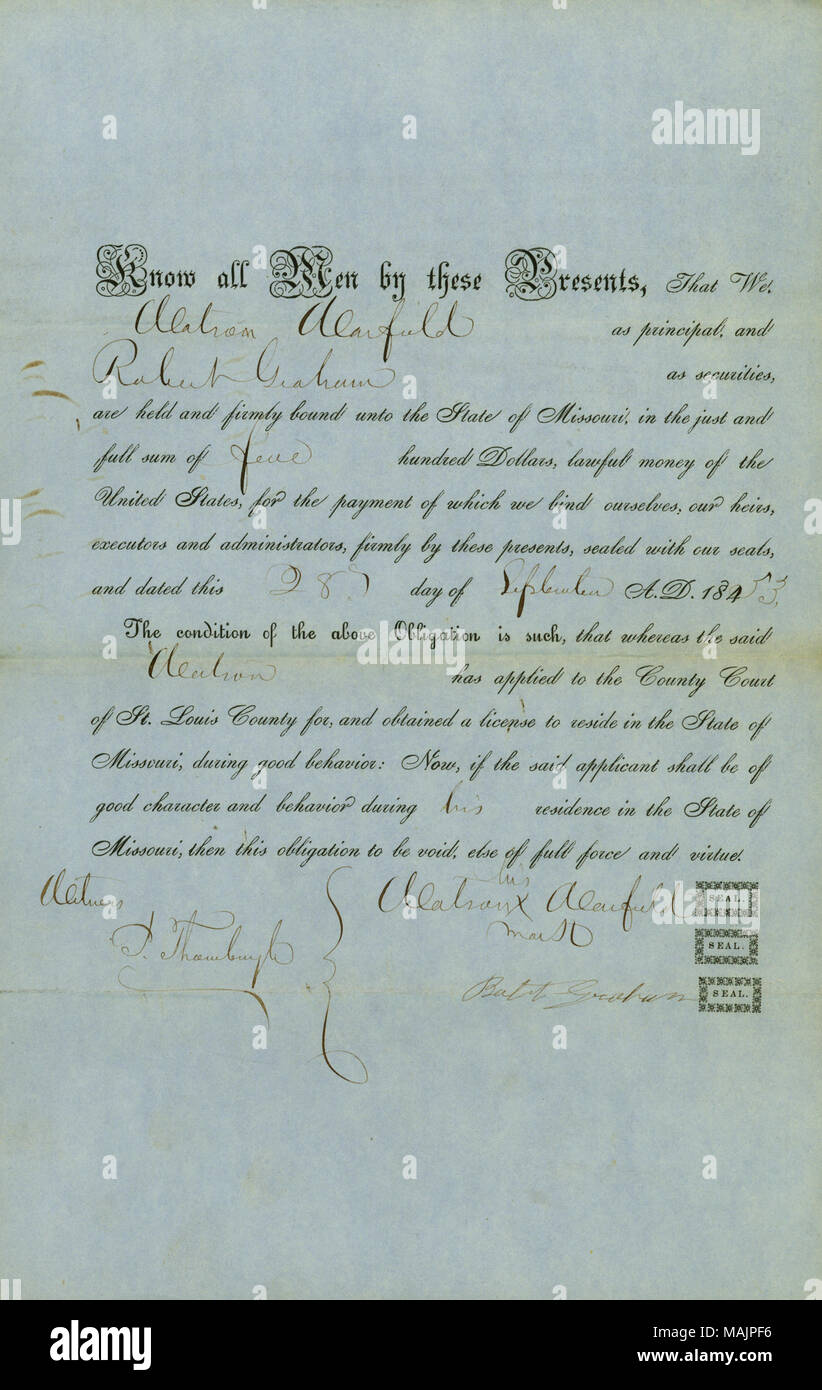 Know all Men by these Presents, That We,
Watson Warfield as principal, and
Robert Graham as securities,
are held and firmly bound unto the State of Missouri, in the just and
full sum of five hundred Dollars, lawful money of the
United States, for the payment of which we bind ourselves, our heirs,
executors and administrators, firmly by these presents, sealed with our seals,
and dated this 28 day of September A.D. 18453,
The condition of the above Obligation is such, that whereas the said
Watson has applied to the County Court
of St. Louis County for, and obtained a license to reside in the State of
Missouri, during good behavior: Now, if the said applicant shall be of
good character and behavior during his residence in the State of
Missouri, then this obligation to be void, else of full force and virtue.
his
Witness Watson x Warfield SEAL.
mark
SEAL.
Graham SEAL.
alamy
a
alamy
Image ID: MAJPF6
www.alamy.com